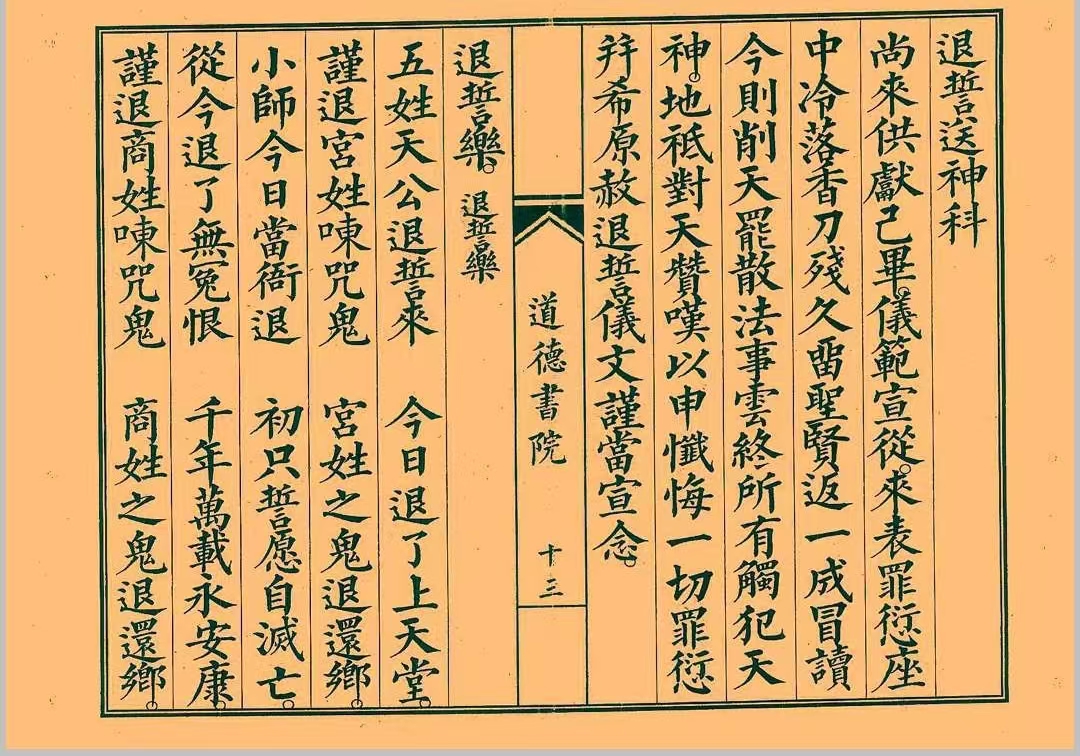 退誓送神科
尚來供獻己畢。儀範宣從。來表罪愆座
中冷落香刀殘久畱聖賢返一成冒讀
今則削天罷散法事雲終所有觸犯天
神。地祗對天贊嘆以申懺悔一切罪愆
并希原赦退誓儀文謹當宣念。
道德書院
十三
退誓樂。退誓樂
五姓天公退誓來 今日退了上天堂。
謹退宮姓㖦咒鬼 宮姓之鬼退還鄉。
小師今日當衙退 初只誓愿自滅亡。
從今退了無冤恨 千年萬載永安康。
謹退商姓㖦咒鬼 商姓之鬼退還鄉。